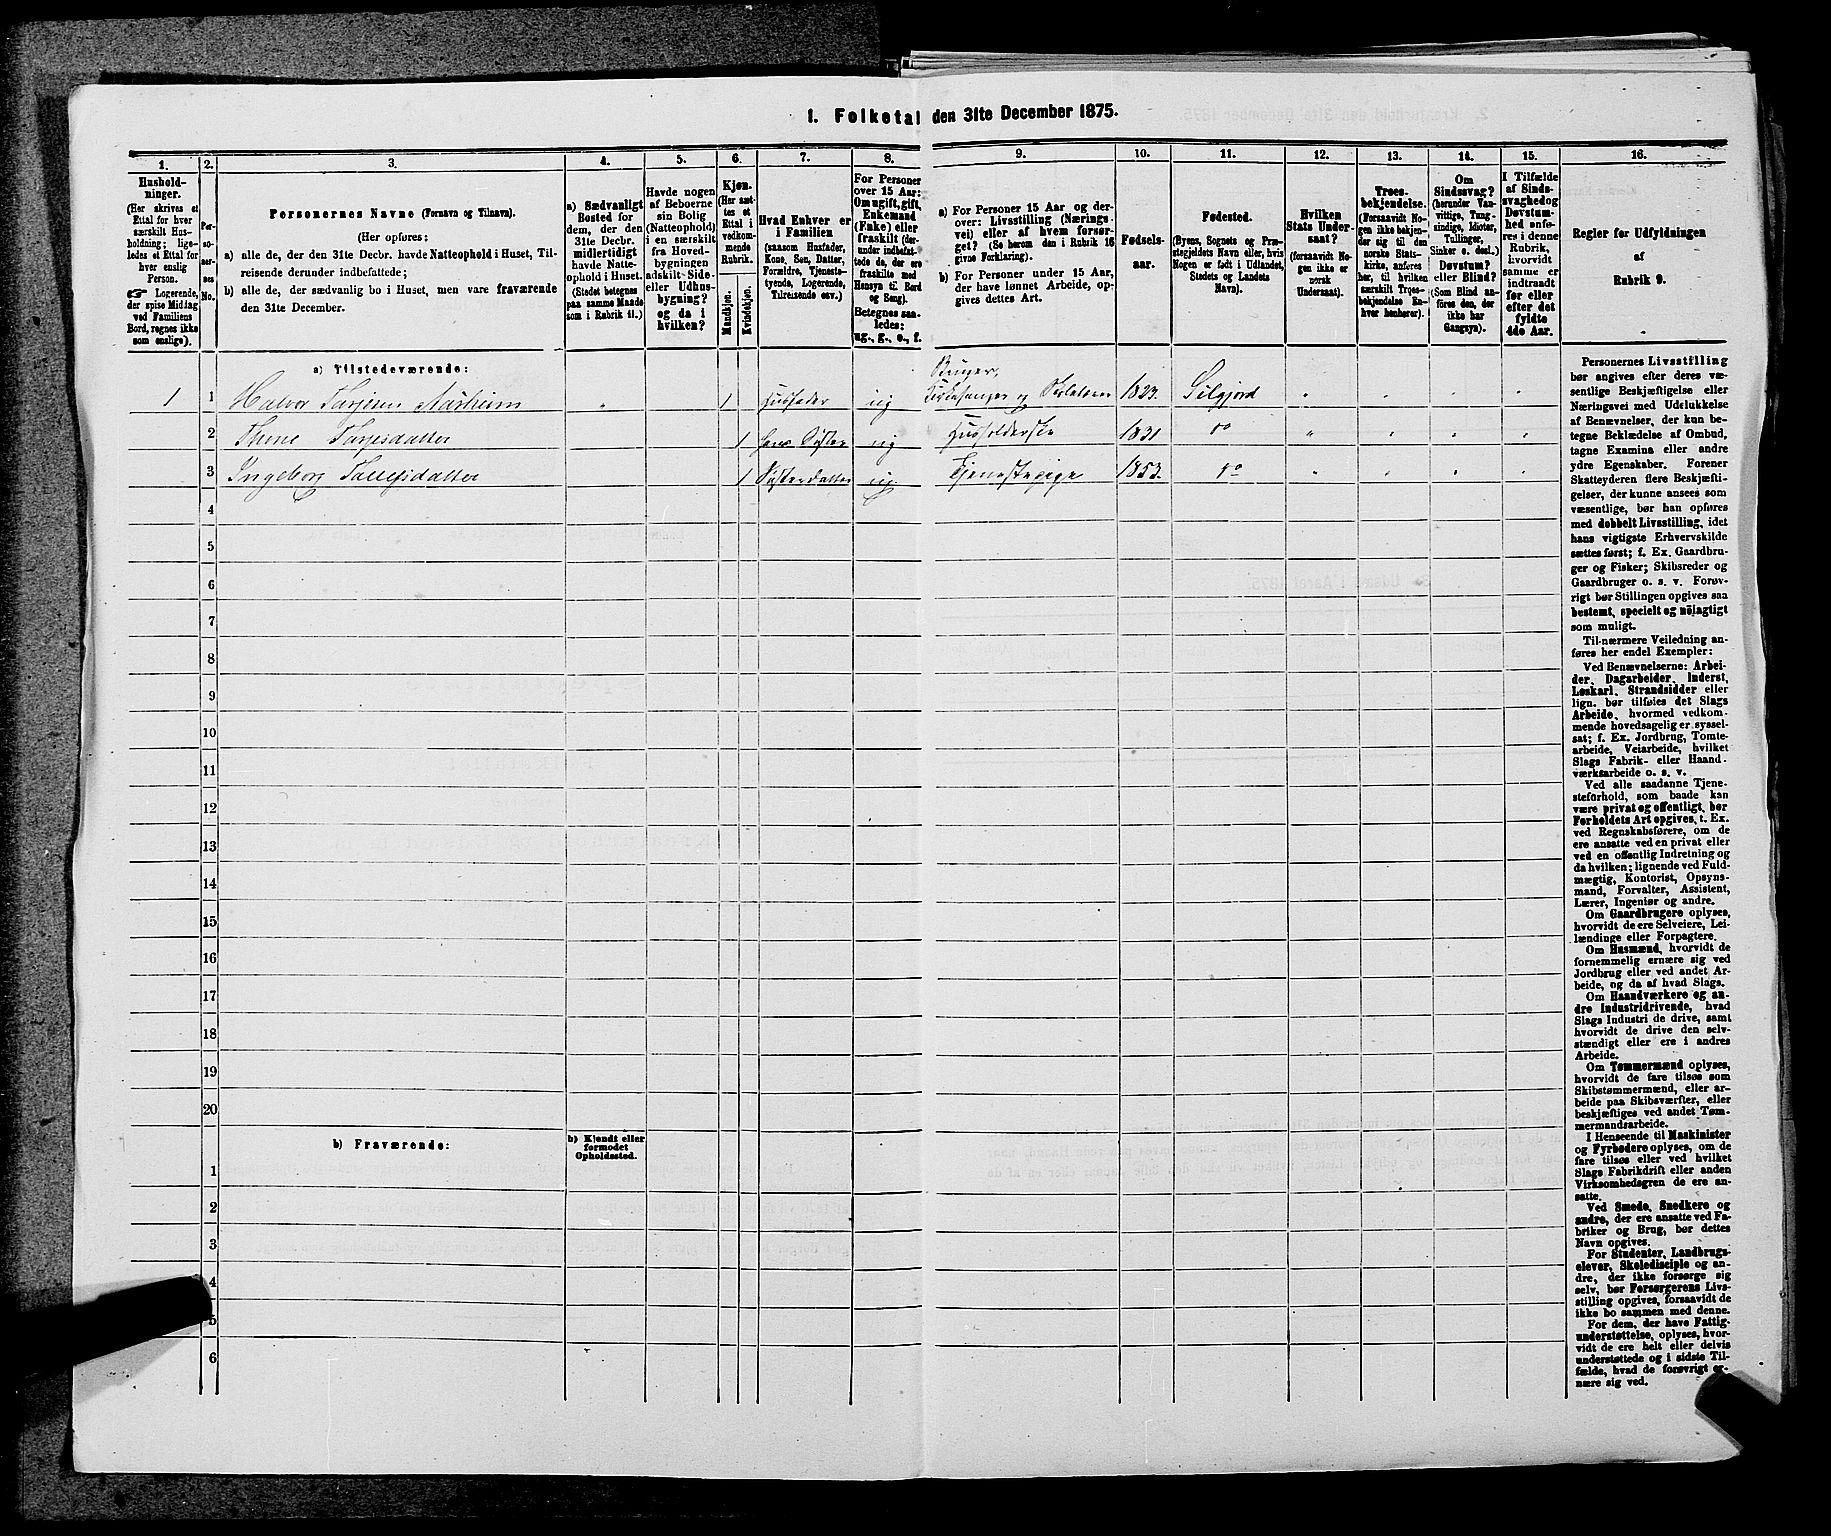 1. Folketal den 31te December 1875.
1.
2.
3.
4.
5.
6.
7.
8.
9.
10.
11.
12.
13.
14.
15.
16.
Hushold-
ninger.
(Her skrives et
Ettal for hver
særskilt Hus-
holdning; lige-
ledes et Ettal for
hver enslig
Person.
☞ Logerende,
der spise Middag
ved Familiens
Bord, regnes ikke
som enslige).
Per-
so-
ner-
nes
No.
Personernes Navne (Fornavn og Tilnavn).
(Her opføres:
a) alle de, der den 31te Decbr. havde Natteophold i Huset, Til-
reisende derunder indbefattede;
b) alle de, der sædvanlig bo i Huset, men vare fraværende
den 31te December.
a) Sædvanligt
Bosted for
dem, der den
31te Decbr.
midlertidigt
havde Natte-
ophold i Huset.
(Stedet betegnes
paa samme Maade
som i Rubrik 11.)
Havde nogen
af Beboerne
sin Bolig
(Natteophold)
i en særskilt
fra Hoved-
bygningen
adskilt Side-
eller Udhus-
bygning?
og da i
hvilken?
Kjøn.
(Her sæt-
tes et
Ettal i
vedkom-
mende
Rubrik.
Mandkjøn.
Kvindekjøn.
Hvad Enhver er
i Familien
(saasom Husfader,
Kone, Søn, Datter,
Forældre, Tjeneste-
tyende, Logerende,
Tilreisende osv.)
For Personer
over 15 Aar:
Om ugift, gift,
Enkemand
(Enke) eller
fraskilt (der-
under indbefat-
tede de, der ere
fraskilte med
Hensyn til Bord
og Seng).
Betegnes saa-
ledes:
ug., g., e., f.
a) For Personer 15 Aar og der-
over: Livsstilling (Nærings-
vei) eller af hvem forsør-
get? (Se herom den i Rubrik 16
givne Forklaring).
b) For Personer under 15 Aar,
der have lønnet Arbeide, op-
gives dettes Art.
Fødsels-
aar.
Fødested.
(Byens, Sognets og Præ-
stegjeldets Navn eller, hvis
Nogen er født i Udlandet,
Stedets og Landets
Navn).
Hvilken
Stats Under-
saat?
(forsaavidt No-
gen ikke er
norsk
Undersaat).
Troes-
bekjendelse.
(Forsaavidt No-
gen ikke bekjen-
der sig til den
norske Stats-
kirke, anføres
her, til hvilken
særskilt Troes-
bekjendelse En-
hver henhører).
Om
Sindssvag?
(herunder Van-
vittige, Tung-
sindige, Idioter,
Tullinger,
Sinker o. desl.)
Døvstum?
eller Blind?
(Som Blind an-
føres den, der
ikke har
Gangsyn).
I Tilfælde
af Sinds-
svaghed og
Døvstum-
hed anfø-
res i denne
Rubrik,
hvorvidt
samme er
indtraadt
før eller
efter det
fyldte
4de Aar.
Regler for Udfyldningen
af
Rubrik 9.
a) Tilstedeværende:
1 1 Halvor Tarjesen Aarheim " 1 Husfader ug Kirkesanger og Skolelærer 1823. Silgjord " " " "
2 Thone Tarjesdatter 1 hans Søster ug Husholderske 1831 do " " " "
3 Ingeborg Tallefsdatter 1 Søsterdatter ug. Tjenestepige 1853. do " " " "
4
5
6
7
8
9
10
11
12
13
14
15
16
17
18
19
20
b) Fraværende:
b) Kjendt eller
formodet
Opholdssted.
1
2
3
4
5
6
Personernes Livsstilling
bør angives efter deres væ-
sentlige Beskjæftigelse eller
Næringsvei med Udelukkelse
af Benævnelser, der kun be-
tegne Beklædelse af Ombud,
tagne Examina eller andre
ydre Egenskaber. Forener
Skatteyderen flere Beskjæfti-
gelser, der kunne ansees som
væsentlige, bør han opføres
med dobbelt Livsstilling, idet
hans vigtigste Erhvervskilde
sættes først; f. Ex. Gaardbru-
ger og Fisker; Skibsreder og
Gaardbruger o. s. v. Forøv-
rigt bør Stillingen opgives saa
bestemt, specielt og nøiagtigt
som muligt.
Til nærmere Veiledning an-
føres her endel Exempler:
Ved Benævnelserne: Arbei-
der, Dagarbeider, Inderst,
Løskarl, Strandsidder eller
lign. bør tilføies det Slags
Arbeide, hvormed vedkom-
mende hovedsagelig er syssel-
sat; f. Ex. Jordbrug, Tomte-
arbeide, Veiarbeide, hvilket
Slags Fabrik- eller Haand-
værksarbeide o. s. v.
Ved alle saadanne Tjene-
steforhold, som baade kan
være privat og offentligt, bør
Forholdets Art opgives, t. Ex.
ved Regnskabsførere, om de
ere ansatte ved en privat eller
ved en offentlig Indretning og
da hvilken; lignende ved Fuld-
mægtig, Kontorist, Opsyns-
mand, Forvalter, Assistent,
Lærer, Ingeniør og andre.
Om Gaardbrugere oplyses,
hvorvidt de ere Selveiere, Lei-
lændinge eller Forpagtere.
Om Husmænd, hvorvidt de
fornemmelig ernære sig ved
Jordbrug eller ved andet Ar-
beide, og da af hvad Slags.
Om Haandværkere og an-
dre Industridrivende, hvad
Slags Industri de drive, samt
hvorvidt de drive den selv-
stændigt eller ere i andres
Arbeide.
Om Tømmermænd oplyses,
hvorvidt de fare tilsøs som
Skibstømmermænd, eller ar-
beide paa Skibsværfter, eller
beskjæftiges ved andet Tøm-
mermandsarbeide.
I Henseende til Maskinister
og Fyrbødere oplyses, om de
fare tilsøs eller ved hvilket
Slags Fabrikdrift eller anden
Virksomhedsgren de ere an-
satte.
Ved Smede, Snedkere og
andre, der ere ansatte ved Fa-
briker og Brug, bør dettes
Navn opgives.
For Studenter, Landbrugs-
elever, Skoledisciple og an-
dre, der ikke forsørge sig
selv, bør Forsørgerens Livs-
stilling opgives, forsaavidt de
ikke bo sammen med denne.
For dem, der have Fattig-
understøttelse, oplyses, hvor-
vidt de ere helt eller delvis
understøttede og i sidste Til-
fælde, hvad de forøvrigt er-
nære sig ved.